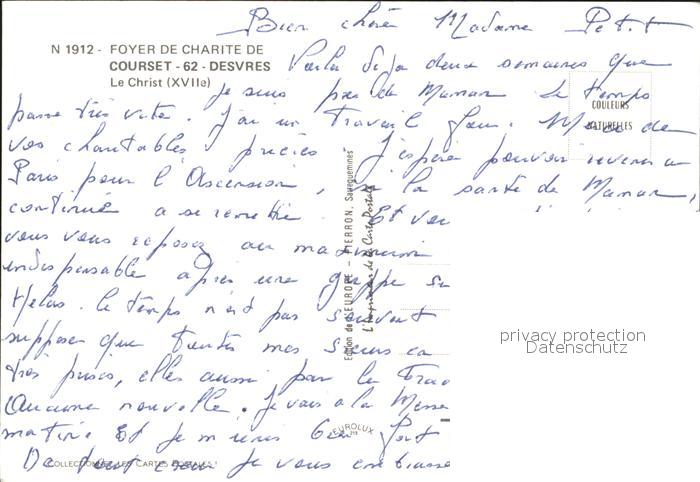 Bien chère Madame Petit
N 1912 - FOYER DE CHARITE DE
COURSET - 62 - DESVRES
Le Christ (XVIIe)
Voila déja deux semaines que
je suis près de Maman Le temps
passe très vite. J'ai un travail fou. Merci de
vos charitables prières J'espère pouvoir revenir a
Paris pour l'Ascension, si la santé de Maman,
continue a se remettre. Et vou
vous vous reposez au maximum
indispensable après une grippe su
Helas. le temps n'est pas souvent
suppose que toutes mes sœurs
très prises, elles aussi par le Trav
Aucune nouvelle. Je vais a la Messe
matin Et je m'unis
De tout cœur je vous embrasse
COULEURS
NATURELLES
Edition de l'EUROPE - PIERRON, Sarreguemines
EUROLUX
COLLECTIONNEZ LES CARTES POSTALES !
privacy protection
Datenschutz